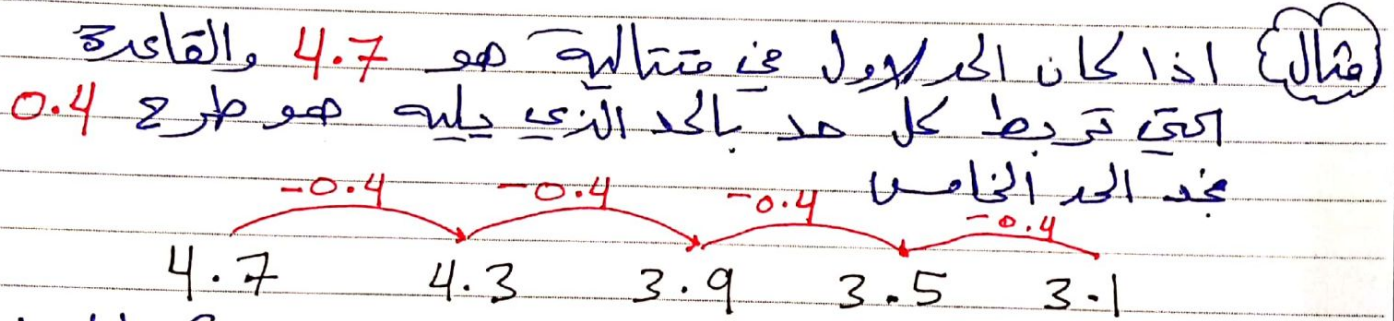 مثال اذا كان الحد الاول في متتالية هو 4.7 والقاعدة
التي تربط كل حد بالحد الذي يليه هو طرح 0.4
نجد الحد الخامس
-0.4 -0.4 -0.4 -0.4
4.7 4.3 3.9 3.5 3.1